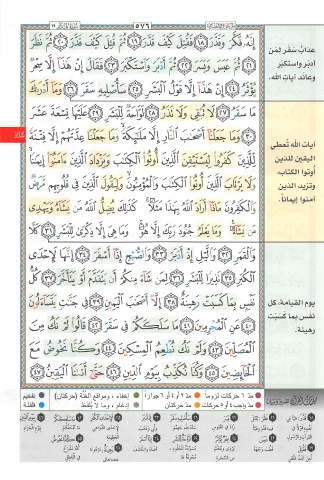 ٥٧٦
إِنَّهُۥ فَكَّرَ وَقَدَّرَ ١٨ فَقُتِلَ كَيْفَ قَدَّرَ ١٩ ثُمَّ قُتِلَ كَيْفَ قَدَّرَ ٢٠ ثُمَّ نَظَرَ
٢١ ثُمَّ عَبَسَ وَبَسَرَ ٢٢ ثُمَّ أَدْبَرَ وَٱسْتَكْبَرَ ٢٣ فَقَالَ إِنْ هَٰذَآ إِلَّا سِحْرٌ
يُؤْثَرُ ٢٤ إِنْ هَٰذَآ إِلَّا قَوْلُ ٱلْبَشَرِ ٢٥ سَأُصْلِيهِ سَقَرَ ٢٦ وَمَآ أَدْرَىٰكَ
مَا سَقَرُ ٢٧ لَا تُبْقِى وَلَا تَذَرُ ٢٨ لَوَّاحَةٌ لِّلْبَشَرِ ٢٩ عَلَيْهَا تِسْعَةَ عَشَرَ
٣٠ وَمَا جَعَلْنَآ أَصْحَٰبَ ٱلنَّارِ إِلَّا مَلَٰٓئِكَةً وَمَا جَعَلْنَا عِدَّتَهُمْ إِلَّا فِتْنَةً
لِّلَّذِينَ كَفَرُوا۟ لِيَسْتَيْقِنَ ٱلَّذِينَ أُوتُوا۟ ٱلْكِتَٰبَ وَيَزْدَادَ ٱلَّذِينَ ءَامَنُوٓا۟ إِيمَٰنًا
وَلَا يَرْتَابَ ٱلَّذِينَ أُوتُوا۟ ٱلْكِتَٰبَ وَٱلْمُؤْمِنُونَ وَلِيَقُولَ ٱلَّذِينَ فِى قُلُوبِهِم مَّرَضٌ
وَٱلْكَٰفِرُونَ مَاذَآ أَرَادَ ٱللَّهُ بِهَٰذَا مَثَلًا كَذَٰلِكَ يُضِلُّ ٱللَّهُ مَن يَشَآءُ وَيَهْدِى
مَن يَشَآءُ وَمَا يَعْلَمُ جُنُودَ رَبِّكَ إِلَّا هُوَ وَمَا هِىَ إِلَّا ذِكْرَىٰ لِلْبَشَرِ ٣١ كَلَّا
وَٱلْقَمَرِ ٣٢ وَٱلَّيْلِ إِذْ أَدْبَرَ ٣٣ وَٱلصُّبْحِ إِذَآ أَسْفَرَ ٣٤ إِنَّهَا لَإِحْدَى
ٱلْكُبَرِ ٣٥ نَذِيرًا لِّلْبَشَرِ ٣٦ لِمَن شَآءَ مِنكُمْ أَن يَتَقَدَّمَ أَوْ يَتَأَخَّرَ ٣٧ كُلُّ
نَفْسٍۭ بِمَا كَسَبَتْ رَهِينَةٌ ٣٨ إِلَّآ أَصْحَٰبَ ٱلْيَمِينِ ٣٩ فِى جَنَّٰتٍ يَتَسَآءَلُونَ
٤٠ عَنِ ٱلْمُجْرِمِينَ ٤١ مَا سَلَكَكُمْ فِى سَقَرَ ٤٢ قَالُوا۟ لَمْ نَكُ مِنَ
ٱلْمُصَلِّينَ ٤٣ وَلَمْ نَكُ نُطْعِمُ ٱلْمِسْكِينَ ٤٤ وَكُنَّا نَخُوضُ مَعَ
ٱلْخَآئِضِينَ ٤٥ وَكُنَّا نُكَذِّبُ بِيَوْمِ ٱلدِّينِ ٤٦ حَتَّىٰٓ أَتَىٰنَا ٱلْيَقِينُ ٤٧
عذاب سقر لمن
أدبر واستكبر
وعاند آيات الله.
آيات الله تُعطي
اليقين للذين
أوتوا الكتاب،
وتزيد الذين
آمنوا إيماناً.
يوم القيامة، كل
نفس بما كسبت
رهينة.
مدّ ٦ حركات لزوماً
مدّ ٢ أو ٤ أو ٦ جوازاً
إخفاء، ومواقع الغُنّة (حركتان)
تفخيم
مدّ واجب ٤ أو ٥ حركات
مدّ حركتان
إدغام، وما لا يُلفَظ
قلقلة